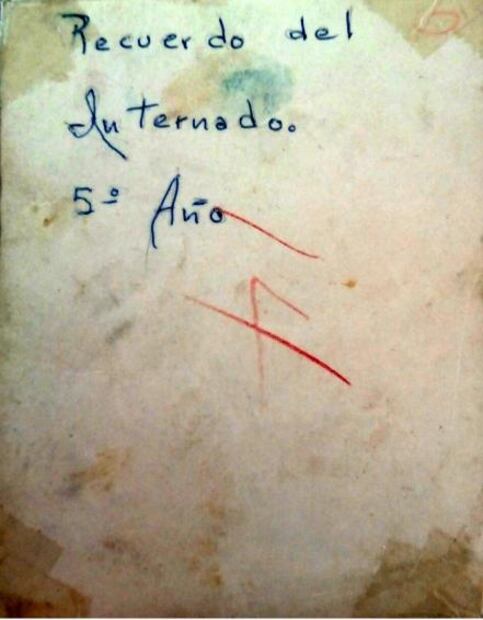 Recuerdo del
Internado.
5º Año